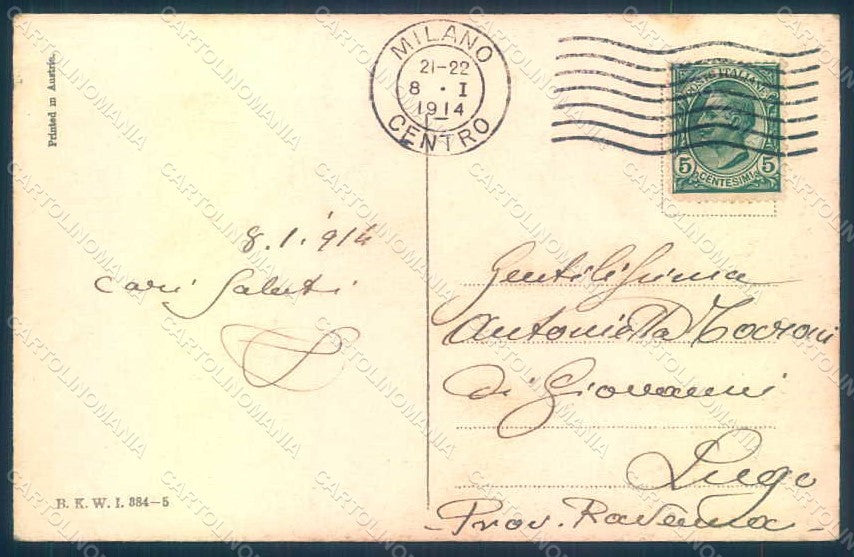 Printed in Austria.
MILANO
21-22
8 · I
1914
CENTRO
POSTE ITALIANE
5 5
CENTESIMI
8.1.914
Cari Saluti
Gentilissima
Antonietta
di Giovanni
Lugo
- Prov. Ravenna -
B. K. W. I. 884-5
CARTOLINOMANIA